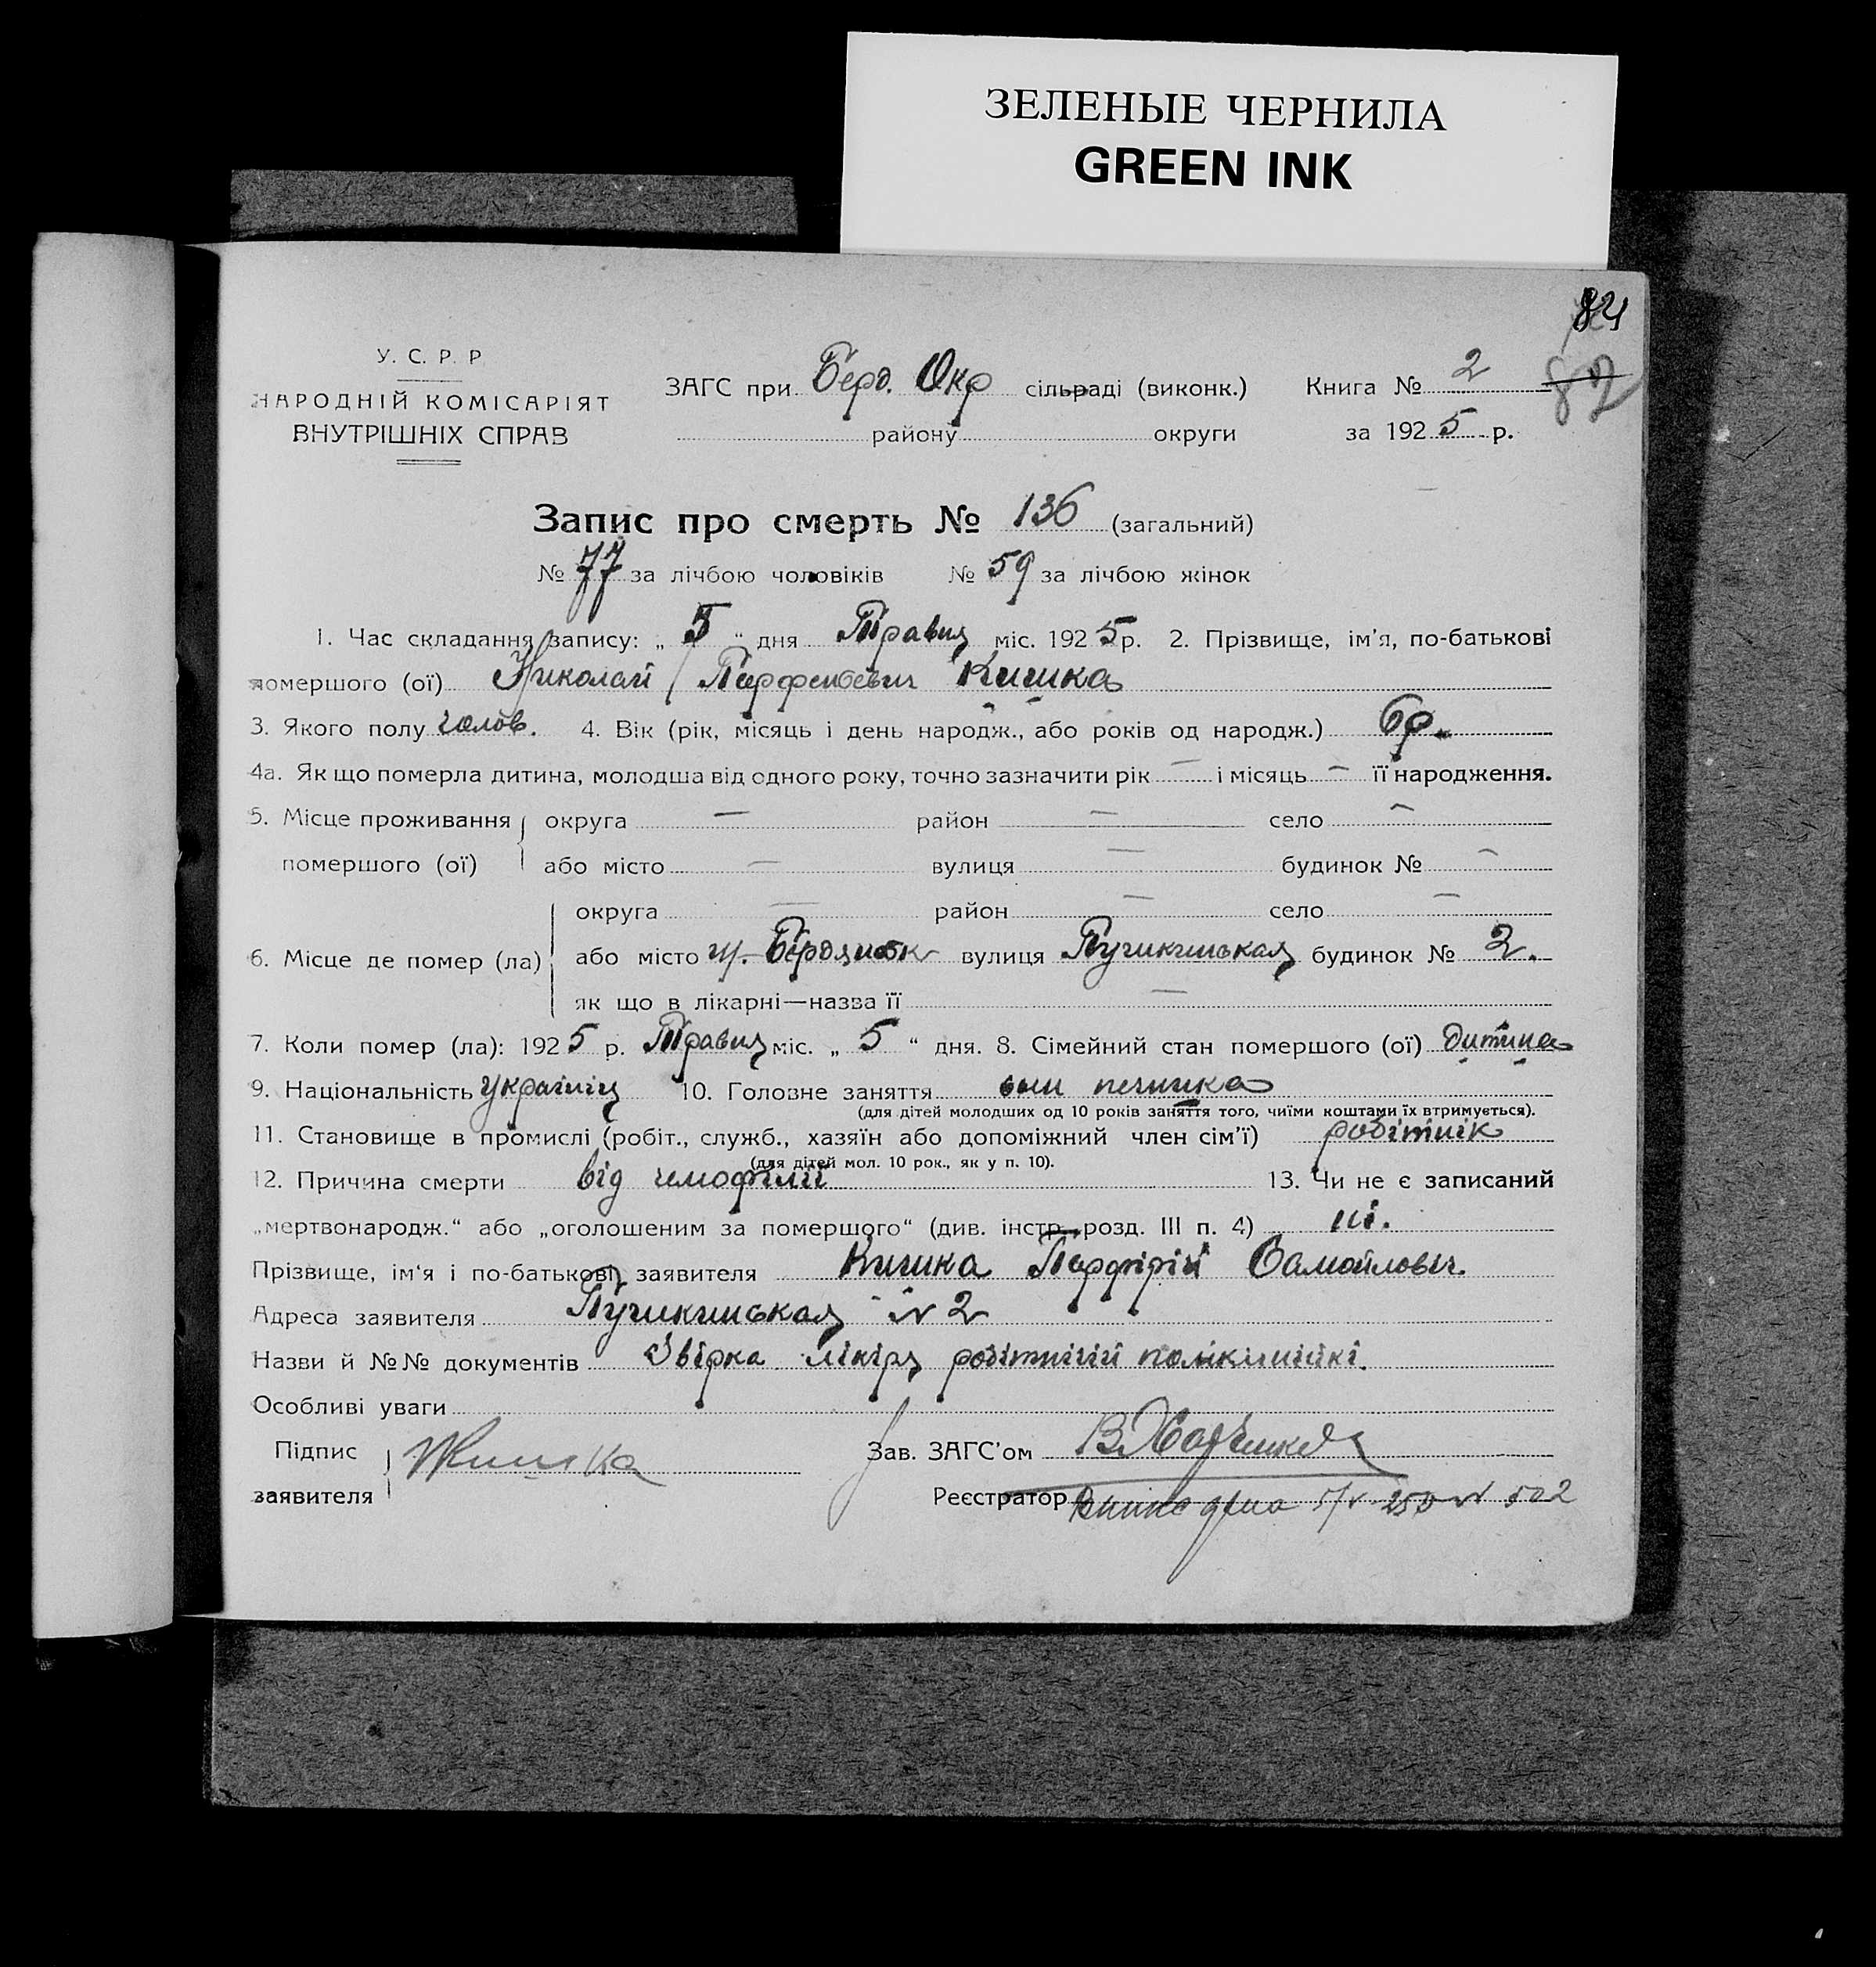 ЗЕЛЕНЫЕ ЧЕРНИЛА
GREEN INK
84
82
У. С. Р. Р.
НАРОДНІЙ КОМІСАРІЯТ
ВНУТРІШНІХ СПРАВ
ЗАГС при Берд. Окр сільраді (виконк.) Книга № 2
району округи за 1925 р.
Запис про смерть № 136 (загальний)
№ 77 за лічбою чоловіків № 59 за лічбою жінок
1. Час складання запису: „ 5 “ дня Травня міс. 1925 р. 2. Прізвище, ім’я, по-батькові
помершого (ої) Николай Парфеньевич Кишка
3. Якого полу чолов. 4. Вік (рік, місяць і день народж., або років од народж.) 6р.
4а. Як що померла дитина, молодша від одного року, точно зазначити рік — і місяць — її народження.
5. Місце проживання округа — район — село —
помершого (ої) або місто — вулиця — будинок № —
округа — район — село —
6. Місце де помер (ла) або місто м. Бердянськ вулиця Пушкинськая будинок № 2.
як що в лікарні—назва її —
7. Коли помер (ла): 1925 р. Травня міс. „ 5 “ дня. 8. Сімейний стан помершого (ої) дитина
9. Національність українець 10. Головне заняття син
(для дітей молодших од 10 років заняття того, чиїми коштами їх втримується).
11. Становище в промислі (робіт., служб., хазяїн або допоміжний член сім’ї) робітник
(для дітей мол. 10 рок., як у п. 10).
12. Причина смерти від гемофілії 13. Чи не є записаний
„мертвонародж.“ або „оголошеним за помершого“ (див. інстр. розд. III п. 4) ні.
Прізвище, ім‘я і по-батькові заявителя Кишка Парфірій Самойлович.
Адреса заявителя Пушкинськая № 2
Назви й №№ документів Звірка лікіря робітничій поліклиники.
Особливі уваги
Підпис Кишка Зав. ЗАГС’ом
заявителя Реєстратор 502